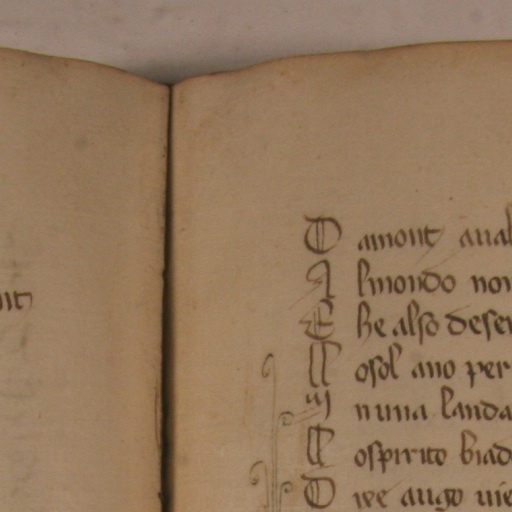 Damont aual
Almondo non
Che also deser
Losol ano per
M nuna landa
Lospirito biad
Doue augo uie